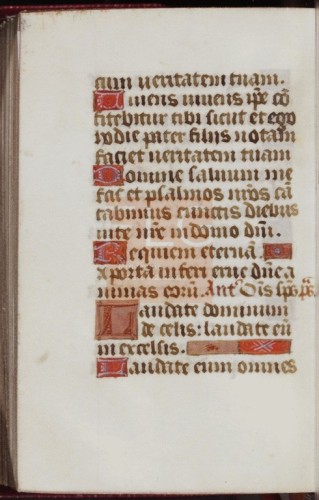 cum ueritatem tuam.
Viuens uiuens ip̄e cō
fitebitur tibi sicut et ego
hodie pater filijs notam
faciet ueritatem tuam
Domine saluum me
fac et psalmos nr̄os cā
tabimus cunctis diebus
uite nr̄e in domo dn̄i.
Requiem eternā.
A porta inferi erue dn̄e a
nimas eorū. Ant̄ Oīs sp̄s. p̄s.
Laudate dominum
de celis: laudate eū
in excelsis.
Laudate eum omnes